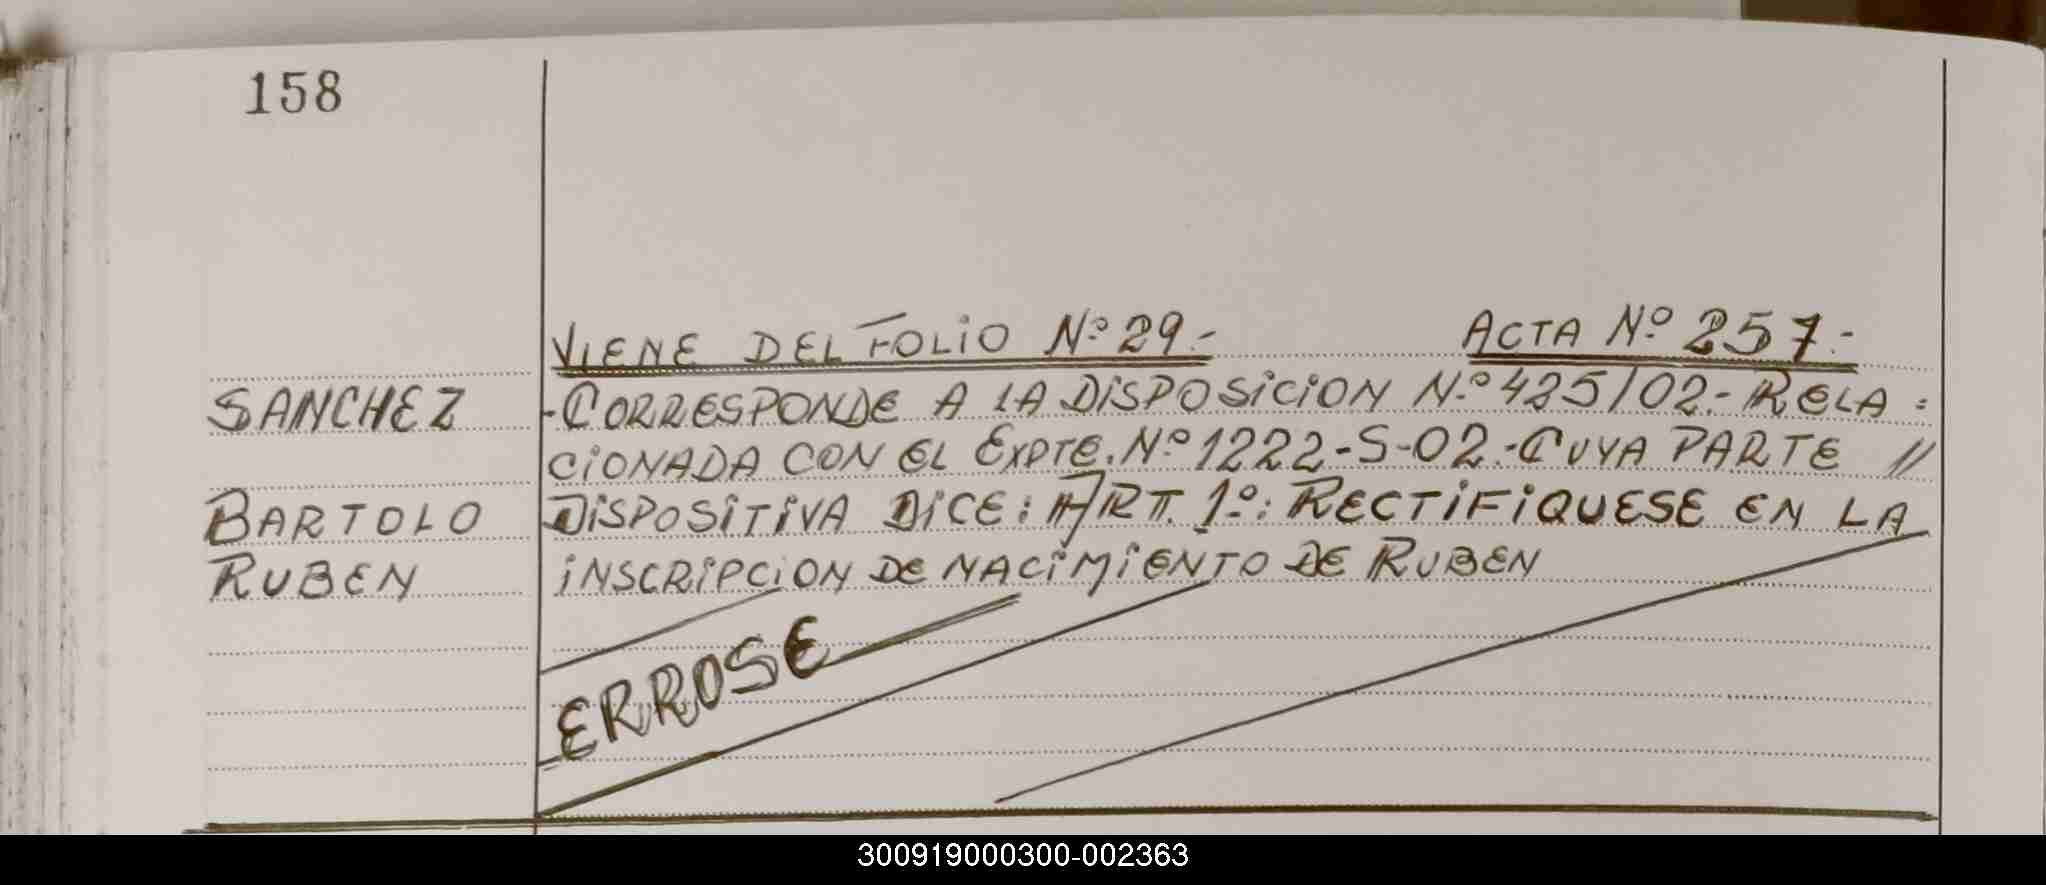 158
VIENE DEL FOLIO Nº 29.- ACTA Nº 257.-
SANCHEZ
-CORRESPONDE A LA DISPOSICION Nº 425/02.- RELA=
CIONADA CON EL EXPTE. Nº 1222-S-02.- CUYA PARTE //
BARTOLO
DISPOSITIVA DICE: ART. 1º: RECTIFIQUESE EN LA
RUBEN
INSCRIPCION DE NACIMIENTO DE RUBEN
ERROSE
300919000300-002363